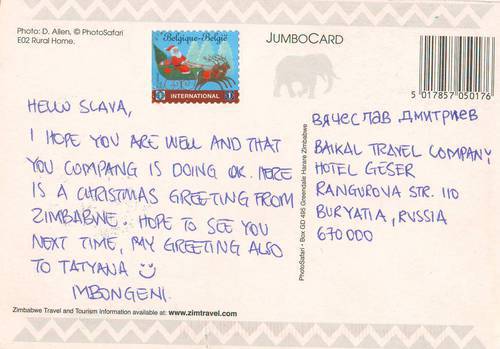 Photo: D. Allen, © PhotoSafari
E02 Rural Home.
Belgique-België
INTERNATIONAL 1
JUMBOCARD
5 017857 050176
HELLO SLAVA,
I HOPE YOU ARE WELL AND THAT
YOU COMPANG IS DOING OK. HERE
IS A CHRISTMAS GREETING FROM
ZIMBABWE. HOPE TO SEE YOU
NEXT TIME, MY GREETING ALSO
TO TATYANA
MBONGENI.
PhotoSafari • Box GD 485 Greendale Harare Zimbabwe
ВЯЧЕСЛАВ ДМИТРИЕВ
BAIKAL TRAVEL COMPANY
HOTEL GESER
RANGUROVA STR. 110
BURYATIA, RUSSIA
670000
Zimbabwe Travel and Tourism Information available at: www.zimtravel.com